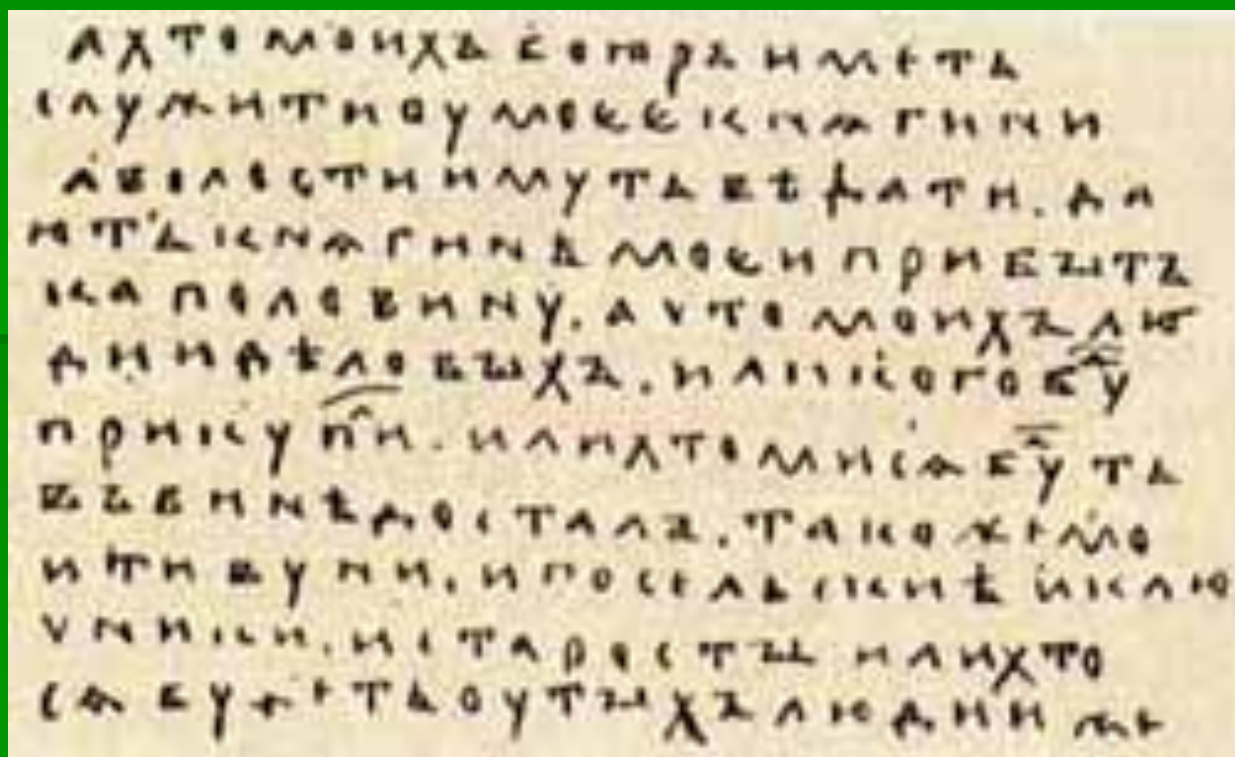 а хто моихъ боꙗръ иметь
служити оу моее кнѧгини
а волости имуть вѣдати. да
ють кнѧгинѣ моеи прибытъ
ка половину. а что моихъ лю
дии дѣловыхъ. или кого бꙋ
прикупи. или хто ми сѧ бу ть
въ винѣ досталъ. такоже мо
и тивуни. и посельскиѣ и клю
чники. и старосты или хто
сѧ будеть оу тыхъ людии же